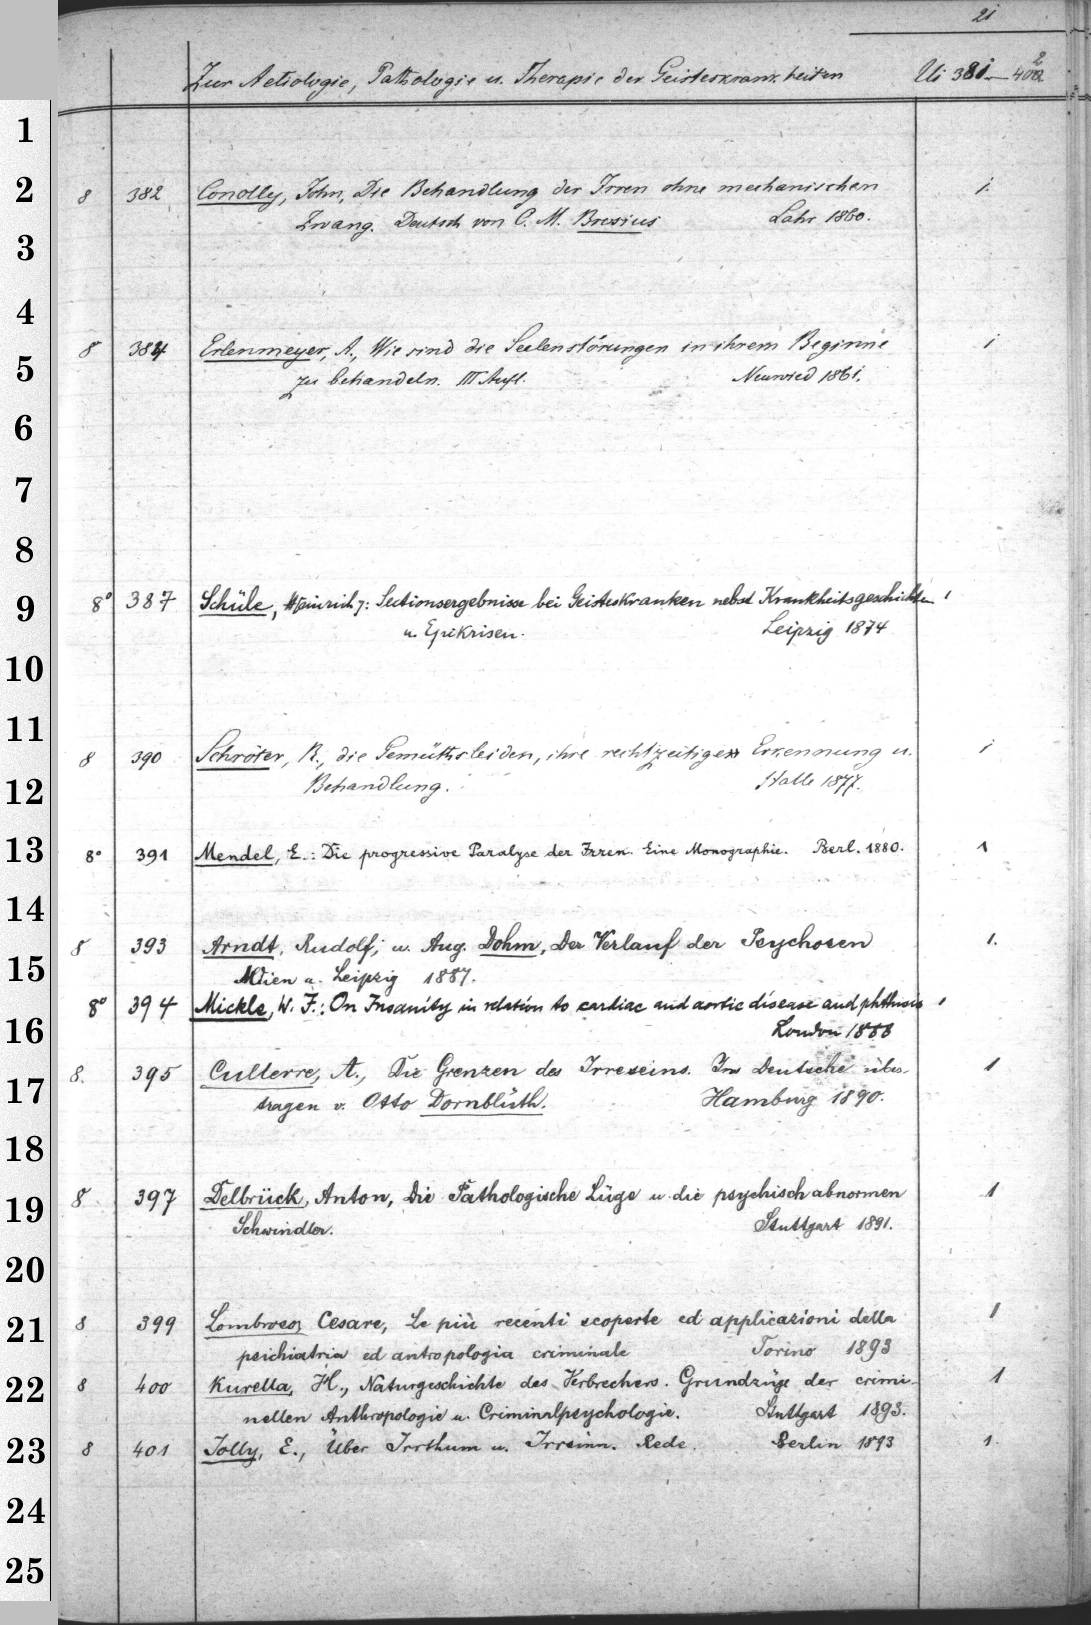 21
Zur Aetiologie, Pathologie u. Therapie der Geisteskrankheiten Ui 381—402
1
2
8 382 Conolly, John, Die Behandlung der Irren ohne mechanischen 1.
Zwang. Deutsch von C. M. Brosius Lahr 1860.
3
4
8 384 Erlenmeyer, A., Wie sind die Seelenstörungen in ihrem Beginne 1
5
zu behandeln. III Aufl. Neuwied 1861.
6
7
8
9
8° 387 Schüle, Heinrich: Sectionsergebnisse bei Geisteskranken nebst Krankheitsgeschichten 1
u. Epikrisen. Leipzig 1874
10
11
8 390 Schröter, R., die Gemüthsleiden, ihre rechtzeitige Erkennung u. 1
12
Behandlung. Halle 1877.
13
8° 391 Mendel, E.: Die progressive Paralyse der Irren. Eine Monographie. Berl. 1880. 1
14
8 393 Arndt, Rudolf, u. Aug. Dohm, Der Verlauf der Psychosen 1.
15
Wien u. Leipzig 1887.
8° 394 Mickle, W. F.: On Insanity in relation to cardiac and aortic disease and phthisis 1
16
London 1888
8. 395 Cullerre, A., Die Grenzen des Irreseins. Ins Deutsche über- 1
17
tragen v. Otto Dornblüth. Hamburg 1890.
18
8 397 Delbrück, Anton, Die Pathologische Lüge u. die psychisch abnormen 1
19
Schwindler. Stuttgart 1891.
20
8 399 Lombroso, Cesare, Le più recenti scoperte ed applicazioni della 1
21
psichiatria ed antropologia criminale Torino 1893
22
8 400 Kurella, H., Naturgeschichte des Verbrechers. Grundzüge der crimi- 1
nellen Anthropologie u. Criminalpsychologie. Stuttgart 1893.
23
8 401 Jolly, E., Über Irrthum u. Irrsinn. Rede. Berlin 1893 1.
24
25